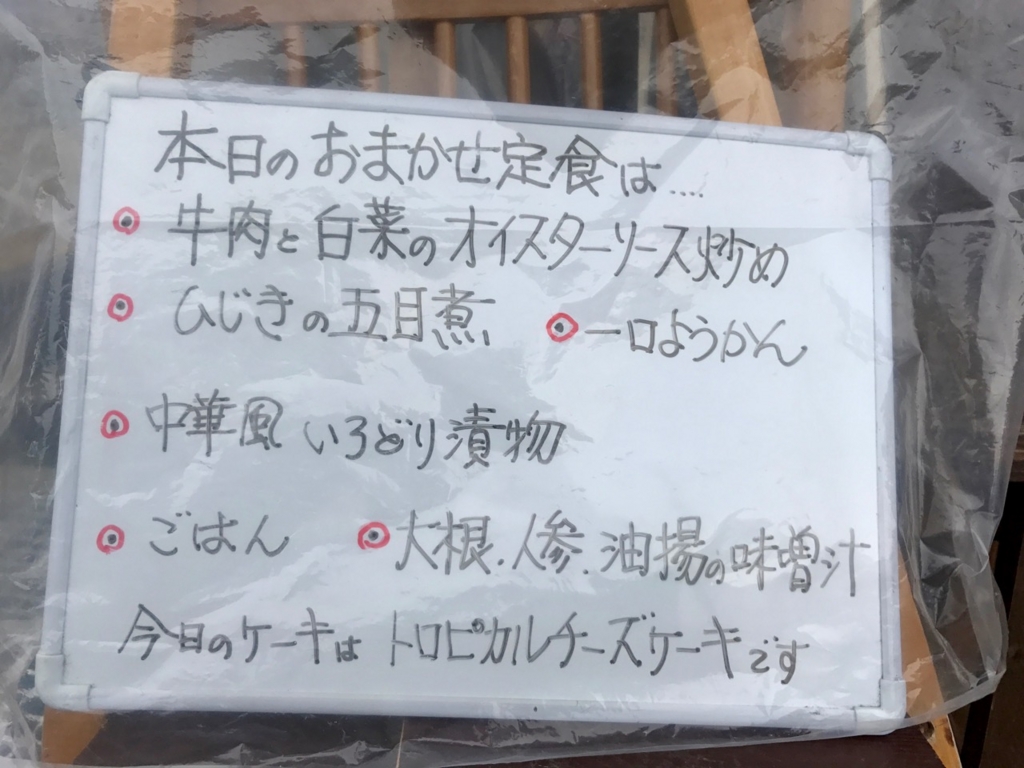 本日のおまかせ定食は....
牛肉と白菜のオイスターソース炒め
ひじきの五目煮 一口ようかん
中華風 いろどり漬物
ごはん 大根.人参.油揚の味噌汁
今日のケーキは トロピカルチーズケーキです